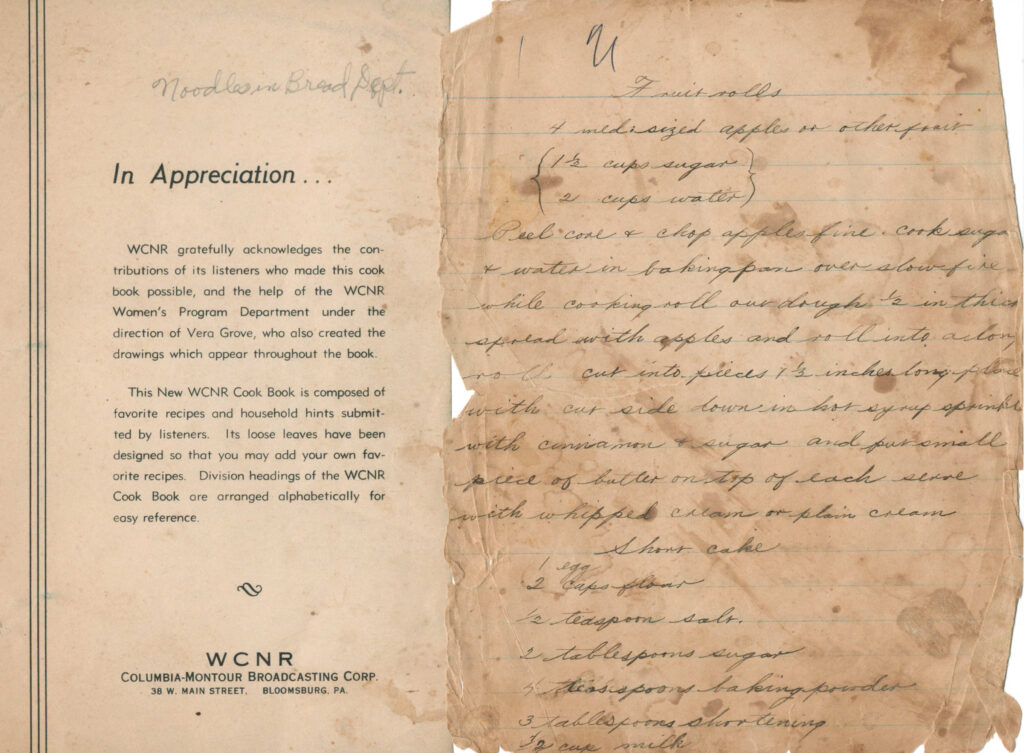 Noodles in Bread Dept.
In Appreciation . . .
WCNR gratefully acknowledges the con-
tributions of its listeners who made this cook
book possible, and the help of the WCNR
Women's Program Department under the
direction of Vera Grove, who also created the
drawings which appear throughout the book.
This New WCNR Cook Book is composed of
favorite recipes and household hints submit-
ted by listeners. Its loose leaves have been
designed so that you may add your own fav-
orite recipes. Division headings of the WCNR
Cook Book are arranged alphabetically for
easy reference.
WCNR
COLUMBIA-MONTOUR BROADCASTING CORP.
38 W. MAIN STREET, BLOOMSBURG, PA.
Fruit rolls
4 med. sized apples or other fruit
1 1/2 cups sugar
2 cups water
Peel core & chop apples fine. cook suga
& water in baking pan over slow fire
while cooking roll out dough 1/2 in thic
spread with apples and roll into a lon
roll. cut into pieces 1 1/2 inches long place
with cut side down in hot syrup sprinkle
with cinnamon & sugar and put small
piece of butter on top of each serve
with whipped cream or plain cream
Short cake
1 egg
2 cups flour
1/2 teaspoon salt.
2 tablespoons sugar
4 teaspoons baking powder
3 tablespoons shortening
1/2 cup milk